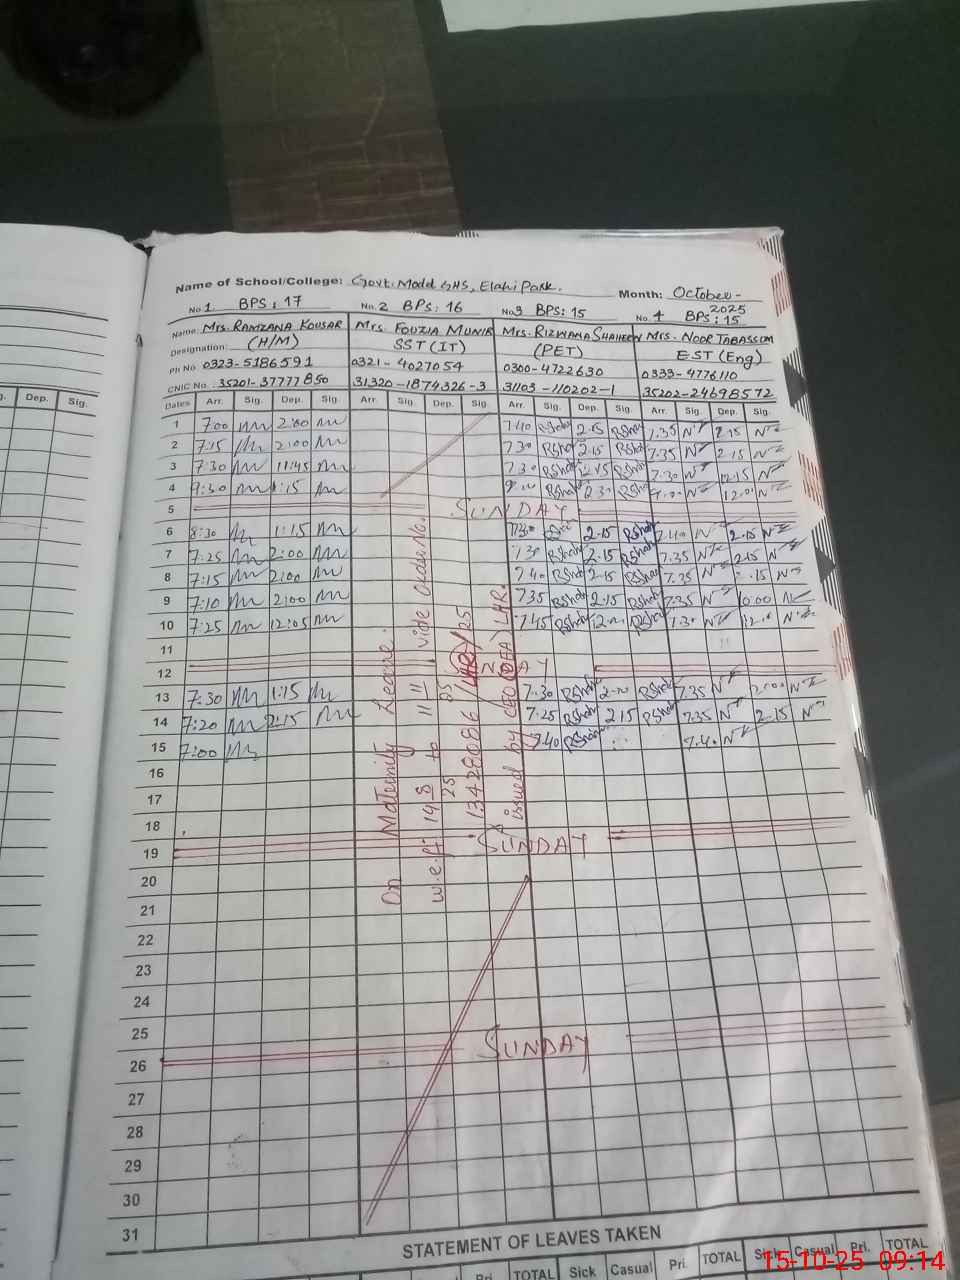 Name of School/College: Govt. Model GHS, Elahi Park. Month: October-2025
No. 1 BPS: 17 No. 2 BPS: 16 No. 3 BPS: 15 No. 4 BPS: 15
Name: Mrs. RAMZANA KOUSAR Mrs. FOUZIA MUNIR Mrs. RIZWANA SHAHEEN Mrs. NOOR TABASSUM
Designation: (H/M) SST (IT) (PET) EST (Eng)
PH No. 0323-5186591 0321-4027054 0300-4722630 0333-4776110
CNIC No. 35201-3777785 0 31320-1874326-3 31103-110202-1 35202-2469857 2
Dates Arr. Sig. Dep. Sig. Arr. Sig. Dep. Sig. Arr. Sig. Dep. Sig. Arr. Sig. Dep. Sig.
1 7:00 2:00 7.40 2.15 7.35 2.15
2 7:15 2:00 7.30 2.15 7.35 2.15
3 7:30 11:45 7.30 12.15 7.30 12.15
4 9:30 1:15 2.30
5 SUNDAY
6 8:30 1:15 7.30 2.15 7.40 2.15
7 7:25 2:00 7.30 2.15 7.35 2.15
8 7:15 2:00 7.40 2.15 7.35
9 7:10 2:00 7.35 2.15 7.35 10:00
10 7:25 12:05 7.45
11
12 SUNDAY
13 7:30 1:15 7.30 7.35
14 7:20 2:15 7.25 2.15 7.35 2.15
15 7:00 7.40 7.40
16
17
18
19 SUNDAY
20
21
22
23
24
25
26 SUNDAY
27
28
29
30
31
On Maternity Leave.
w.e.f: 14 8 25 to 11 11 25 vide order No.
issued by CEO (DEA) LHR.
STATEMENT OF LEAVES TAKEN
Pri. TOTAL Sick Casual Pri. TOTAL Sick Casual Pri. TOTAL
15-10-25 09:14
Dep. Sig.